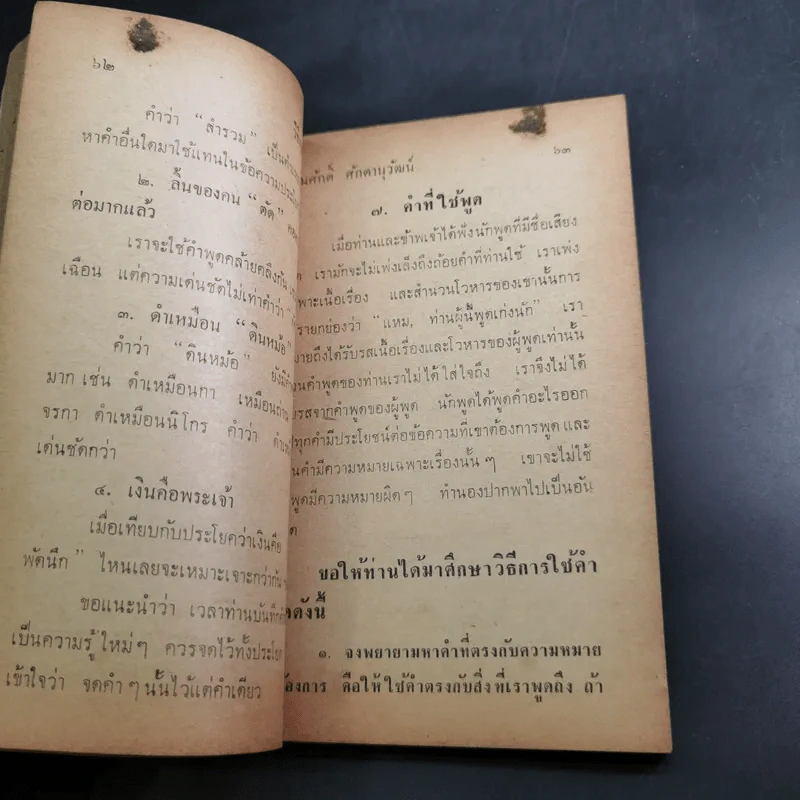 ๖๒
คำว่า "สำรวม" เป็นคำ
หาคำอื่นใดมาใช้แทนในข้อความประโย
๒. ลิ้นของคน "ตัด"
ต่อมากแล้ว
เราจะใช้คำพูดคล้ายคลึงกัน
เฉือน แต่ความเด่นชัดไม่เท่าคำว่า
๓. ดำเหมือน "ดินหม้อ"
คำว่า "ดินหม้อ" ยังมี
มาก เช่น ดำเหมือนกา เหมือนถ่าน
จรกา ดำเหมือนนิโกร คำว่า
เด่นชัดกว่า
๔. เงินคือพระเจ้า
เมื่อเทียบกับประโยคว่าเงินคือ
พัตนึก" ไหนเลยจะเหมาะเจาะกว่ากัน
ขอแนะนำว่า เวลาท่านบันทึก
เป็นความรู้ใหม่ๆ ควรจดไว้ทั้งประโยค
เข้าใจว่า จดคำๆ นั้นไว้แต่คำเดียว
นศักดิ์ ศักดานุวัฒน์ ๖๓
๗. คำที่ใช้พูด
เมื่อท่านและข้าพเจ้าได้ฟังนักพูดที่มีชื่อเสียง
เรามักจะไม่เพ่งเล็งถึงถ้อยคำที่ท่านใช้ เราเพ่ง
พาะเนื้อเรื่อง และสำนวนโวหารของเขานั้นการ
รายกย่องว่า "แหม, ท่านผู้นี้พูดเก่งนัก" เรา
มายถึงได้รับรสเนื้อเรื่องและโวหารของผู้พูดเท่านั้น
นคำพูดของท่านเราไม่ได้ใส่ใจถึง เราจึงไม่ได้
บรสจากคำพูดของผู้พูด นักพูดได้พูดคำอะไรออก
ทุกคำมีประโยชน์ต่อข้อความที่เขาต้องการพูด และ
นคำมีความหมายเฉพาะเรื่องนั้นๆ เขาจะไม่ใช้
พูดมีความหมายผิดๆ ทำนองปากพาไปเป็นอัน
ด
ขอให้ท่านได้มาศึกษาวิธีการใช้คำ
ดังนี้
๑. จงพยายามหาคำที่ตรงกับความหมาย
องการ คือให้ใช้คำตรงกับสิ่งที่เราพูดถึง ถ้า